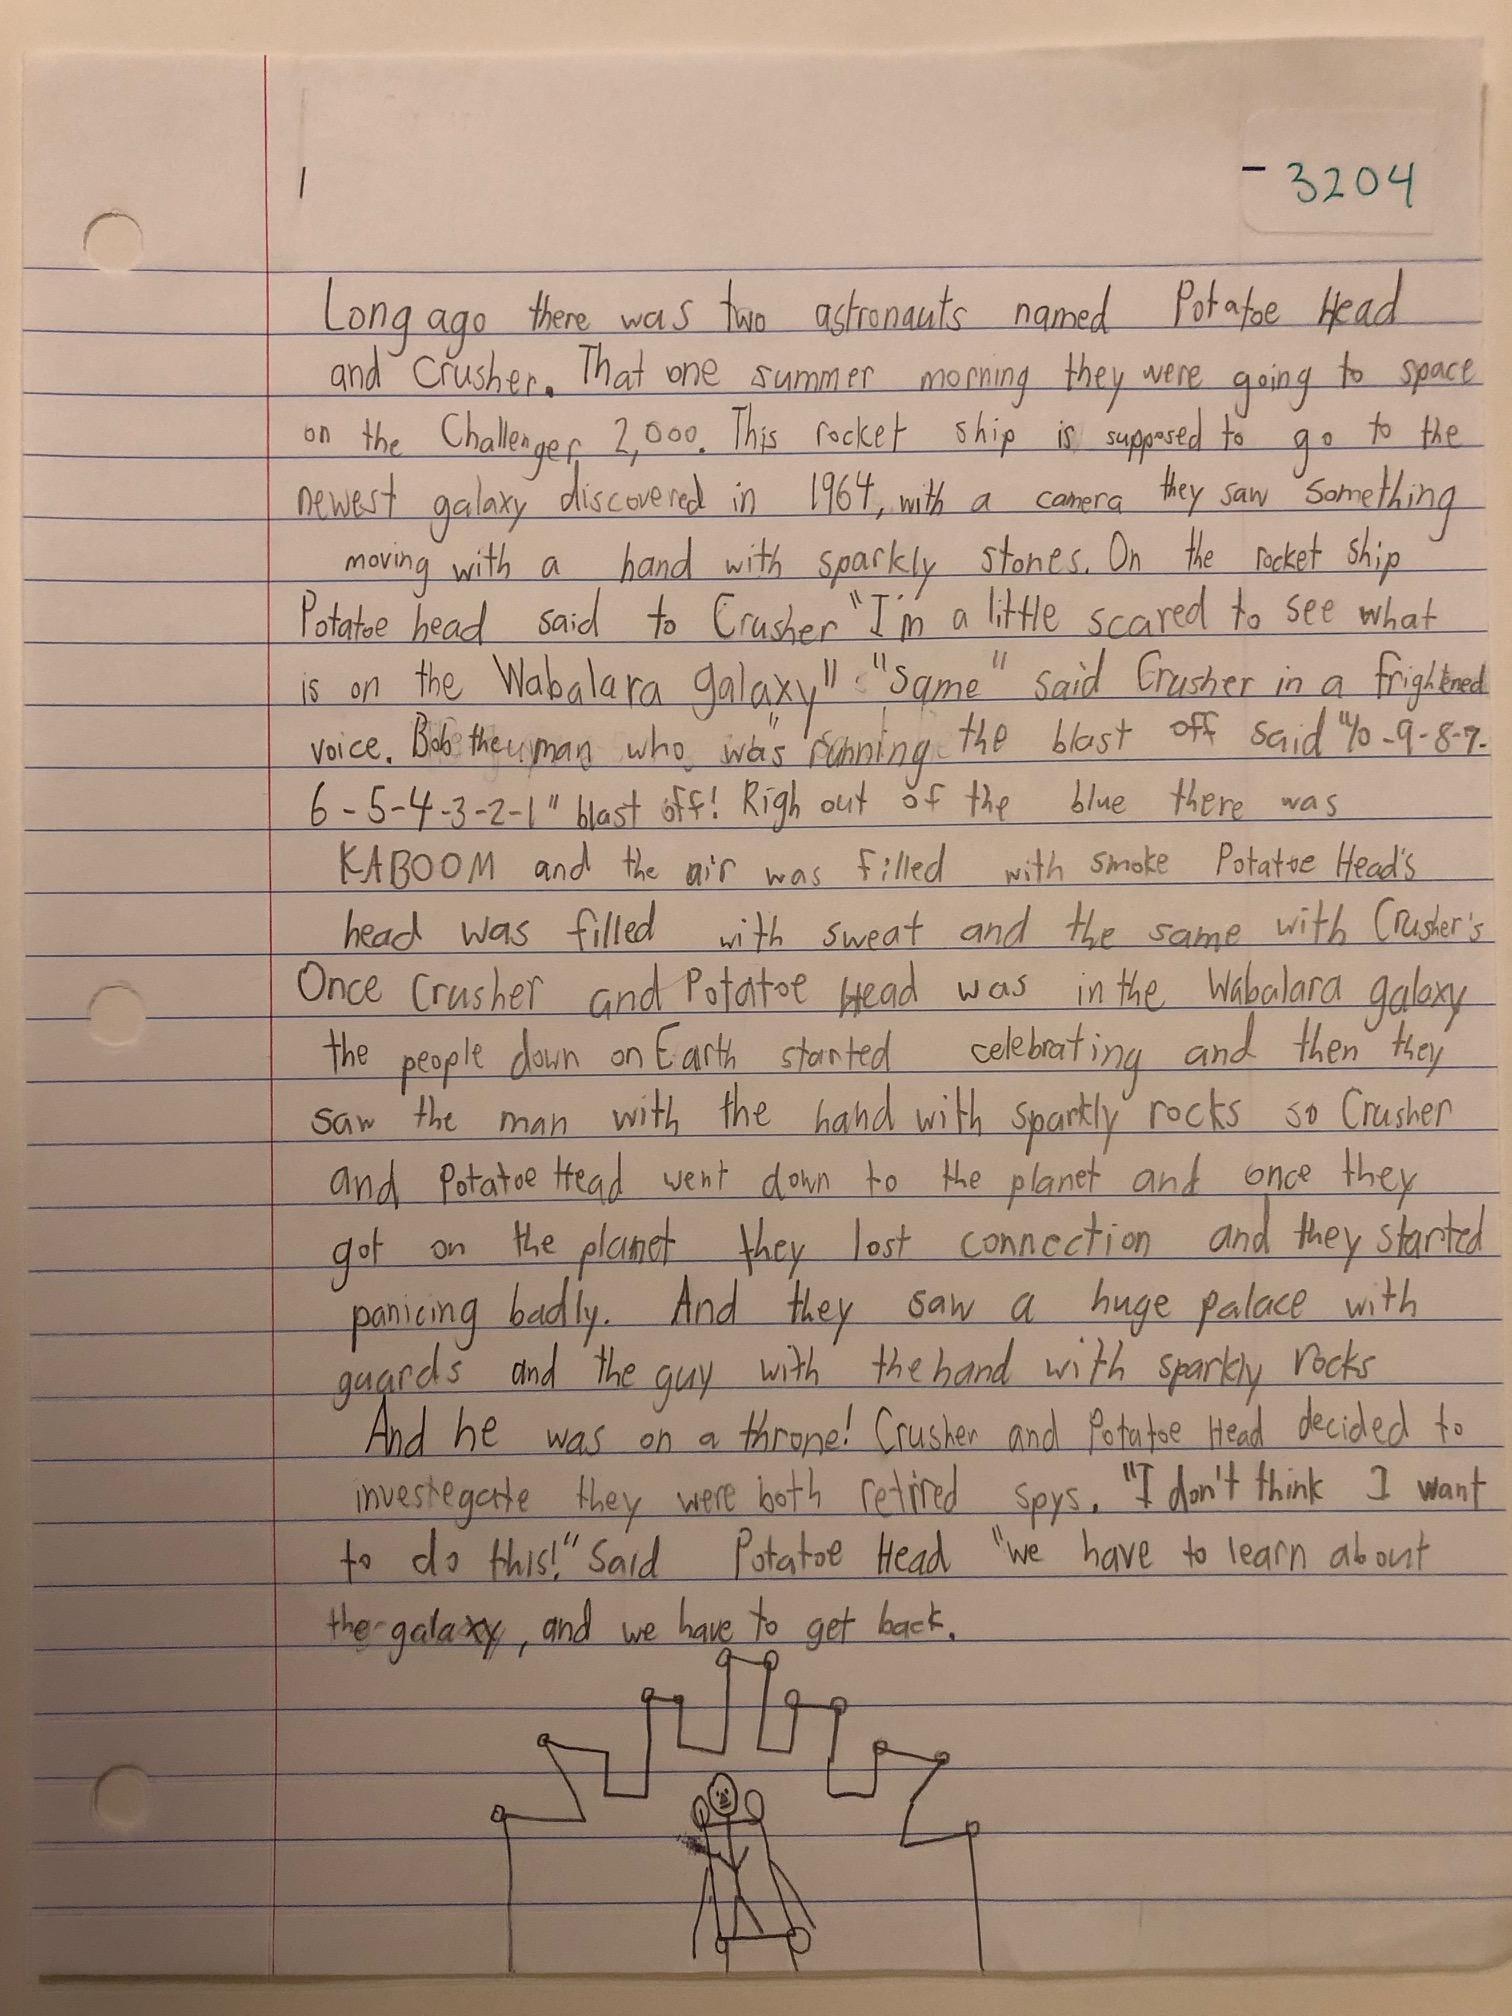 1
- 3204
Long ago there was two astronauts named Potatoe Head
and Crusher. That one summer morning they were going to space
on the Challenger 2,000. This rocket ship is supposed to go to the
newest galaxy discovered in 1964, with a camera they saw something
moving with a hand with sparkly stones. On the rocket ship
Potatoe head said to Crusher "I'm a little scared to see what
is on the Wabalara galaxy" "Same" said Crusher in a frightened
voice. Bob the man who was running the blast off said "10-9-8-7-
6-5-4-3-2-1" blast off! Righ out of the blue there was
KABOOM and the air was filled with smoke Potatoe Head's
head was filled with sweat and the same with Crusher's
Once Crusher and Potatoe Head was in the Wabalara galaxy
the people down on Earth started celebrating and then they
saw the man with the hand with sparkly rocks so Crusher
and Potatoe Head went down to the planet and once they
got on the planet they lost connection and they started
panicing badly. And they saw a huge palace with
guards and the guy with the hand with sparkly rocks
And he was on a throne! Crusher and Potatoe Head decided to
investegate they were both retired spys. "I don't think I want
to do this!" Said Potatoe Head "we have to learn about
the galaxy, and we have to get back.